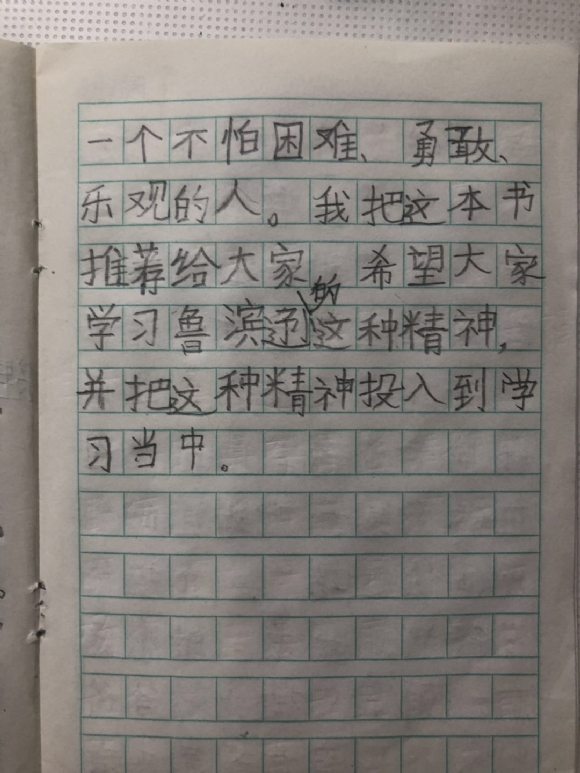 一个不怕困难、勇敢、
乐观的人。我把这本书
推荐给大家 希望大家
学习鲁滨逊的这种精神,
并把这种精神投入到学
习当中。